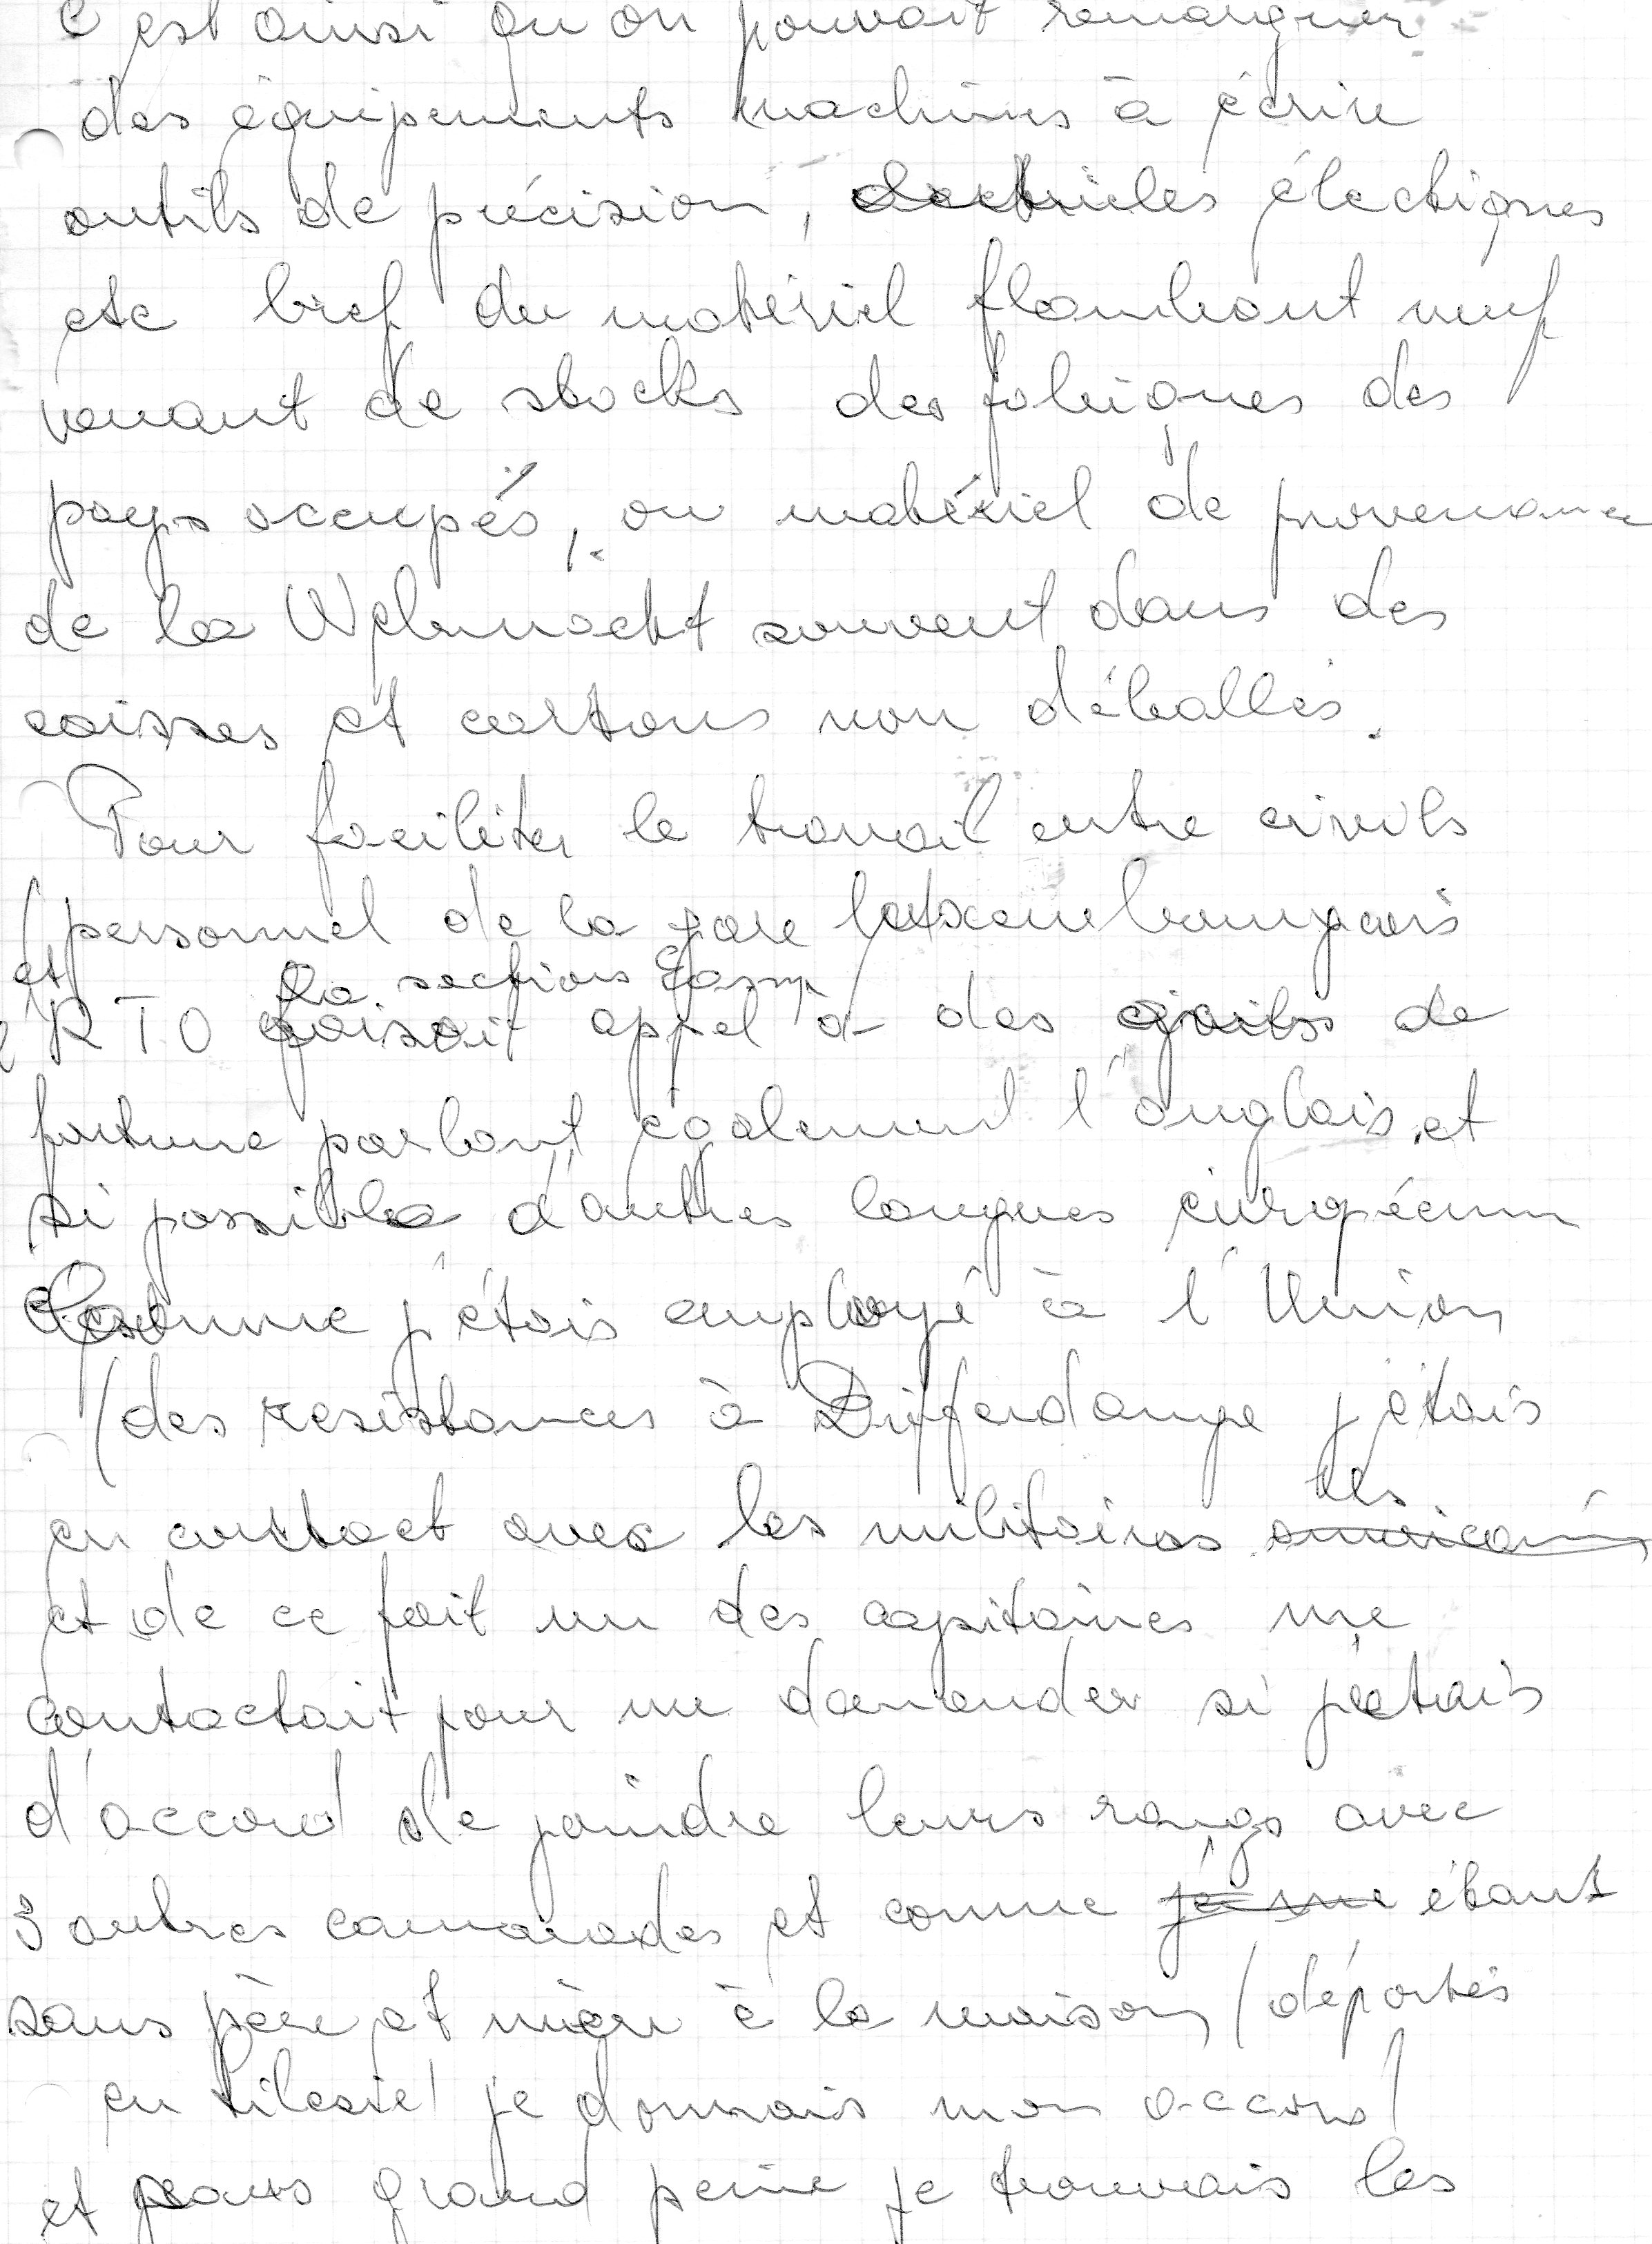 C'est ainsi qu'on pouvait remarquer
des équipements machines à écrire
outils de précision, électriques
etc bref du matériel flambant neuf
venant de stocks des fabriques des
pays occupés, ou matériel de provenance
de la Wehrmacht souvent dans des
caisses et cartons non déballés.
Pour faciliter le travail entre civils
(personnel de la gare luxembourgeois
et la section
RTO faisait appel à des de
fortune parlant également l'anglais et
si possible d'autres langues européenn
Comme j'étais employé à l'Union
(des resistances à Differdange j'étais
US
en contact avec les militaires americains
et de ce fait un des capitaines me
contactait pour me demander si j'étais
d'accord de joindre leurs rangs avec
3 autres camarades et comme étant
sans père et mère à la maison (déportés
en Silesie) je donnais mon accord
et sans grand peine je trouvais les